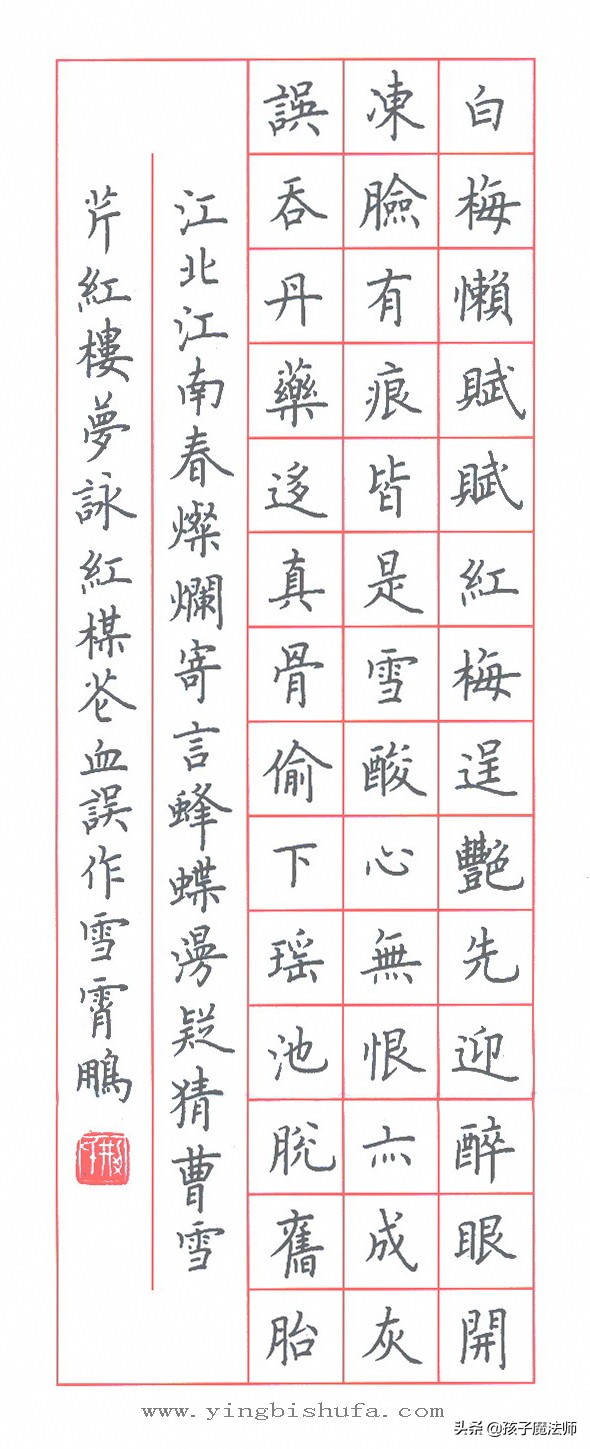 白梅懶賦賦紅梅逞艷先迎醉眼開
凍臉有痕皆是雪酸心無恨亦成灰
誤吞丹藥迻真骨偷下瑶池脫舊胎
江北江南春燦爛寄言蜂蝶漫疑猜曹雪
芹紅樓夢詠紅楳花血誤作雪霄鵬
www.yingbishufa.com
头条 @孩子魔法师